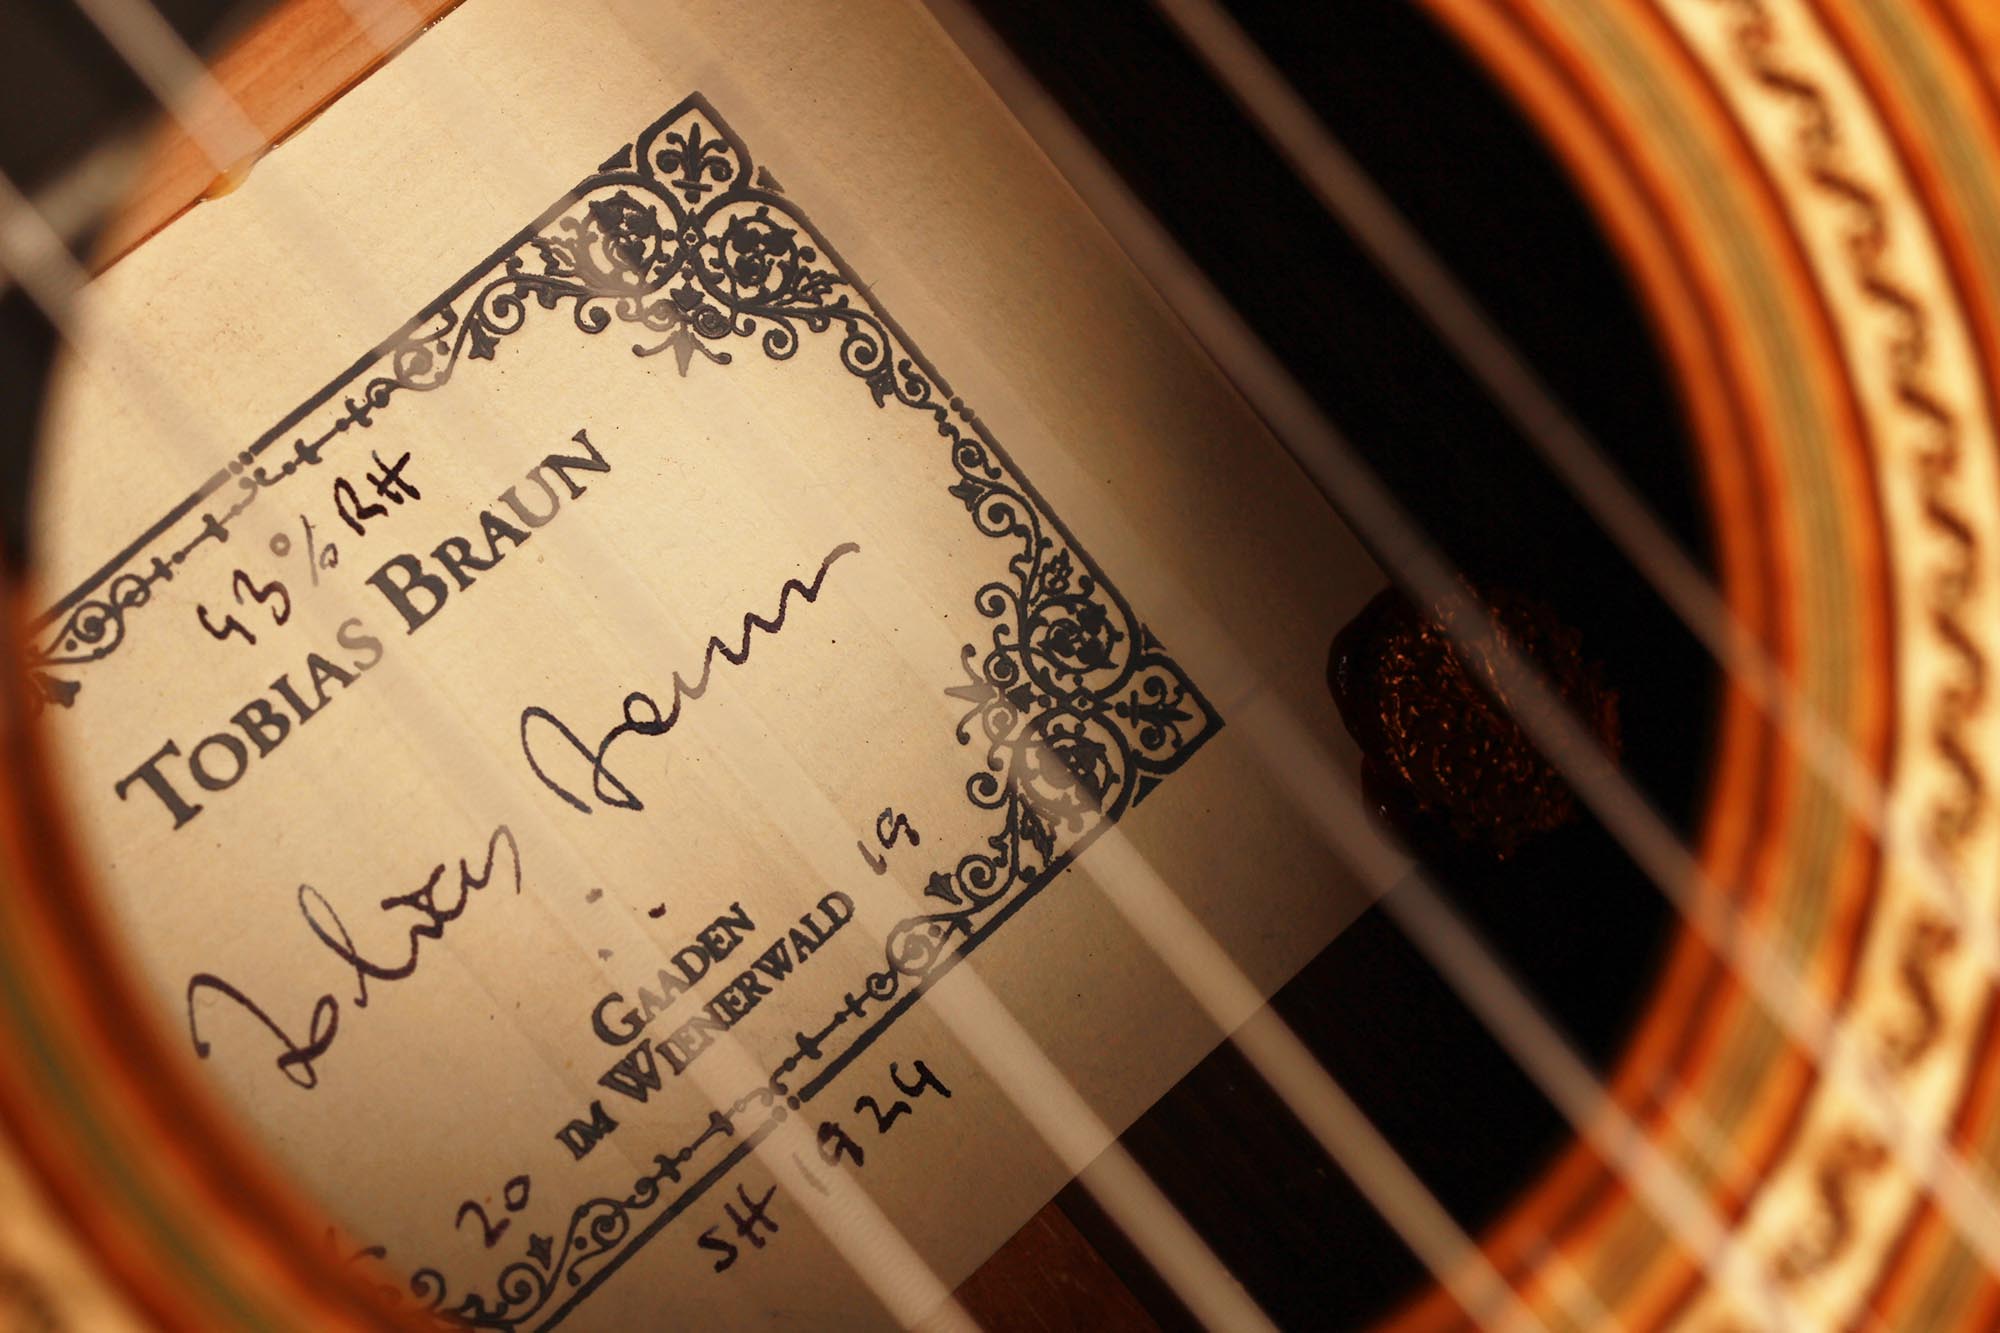 43% RH
TOBIAS BRAUN
Tobias Braun
GAADEN
20 IM WIENERWALD 19
SH 1924